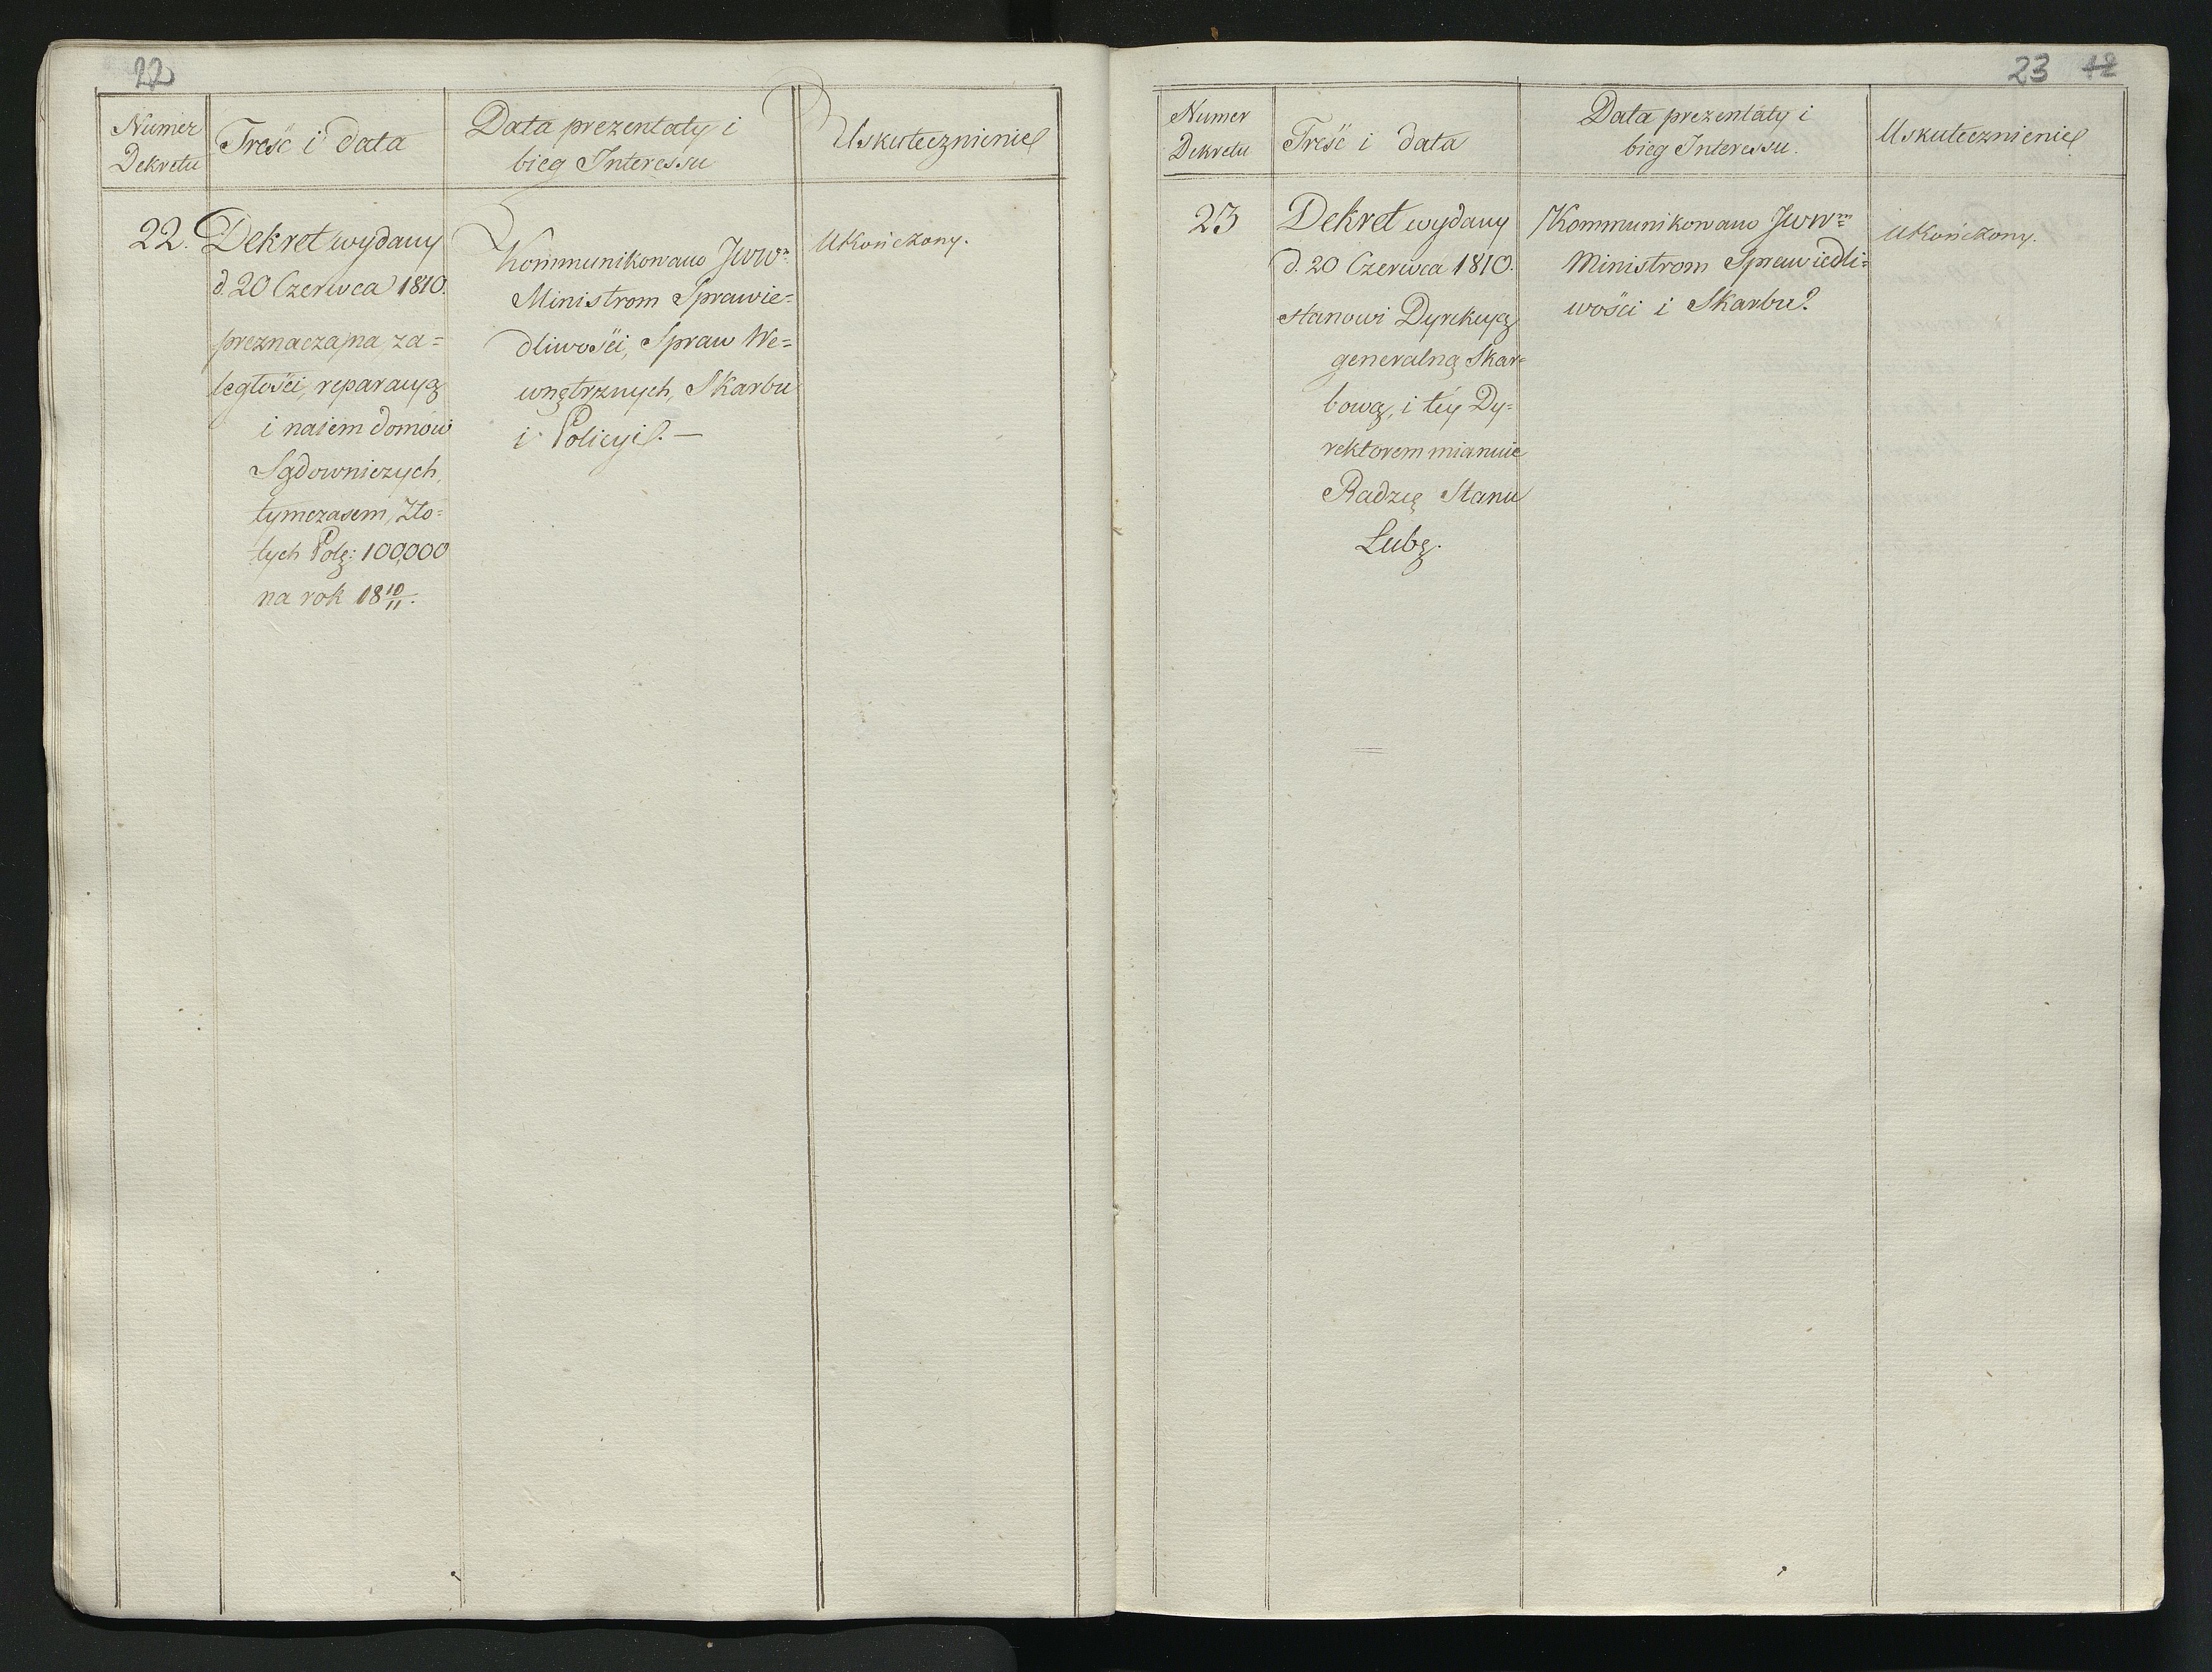 22
Numer
Dekretu
Treść i data
Data prezentaty i
bieg Interessu
Uskutecznienie
22.
Dekret wydany
d. 20 Czerwca 1810.
przeznacza, na za=
ległości, reparacyą
i naiem domów
Sądowniczych,
tymczasem, Zło=
tych Pols: 100,000
na rok 18 10/11.
Kommunikowano JWW.
Ministrom Sprawie=
dliwości, Spraw We=
wnętrznych, Skarbu
i Policyi. —
Ukończony.
23 12
Numer
Dekretu
Treść i data
Data prezentaty i
bieg Interessu.
Uskutecznienie
23
Dekret wydany
d. 20 Czerwca 1810.
stanowi Dyrekcyą
generalną Skar=
bową, i téy Dy=
rektorem mianuie
Radzcę Stanu
Lubę.
Kommunikowano JWWm
Ministrom Sprawiedli=
wości i Skarbu.
Ukończony.